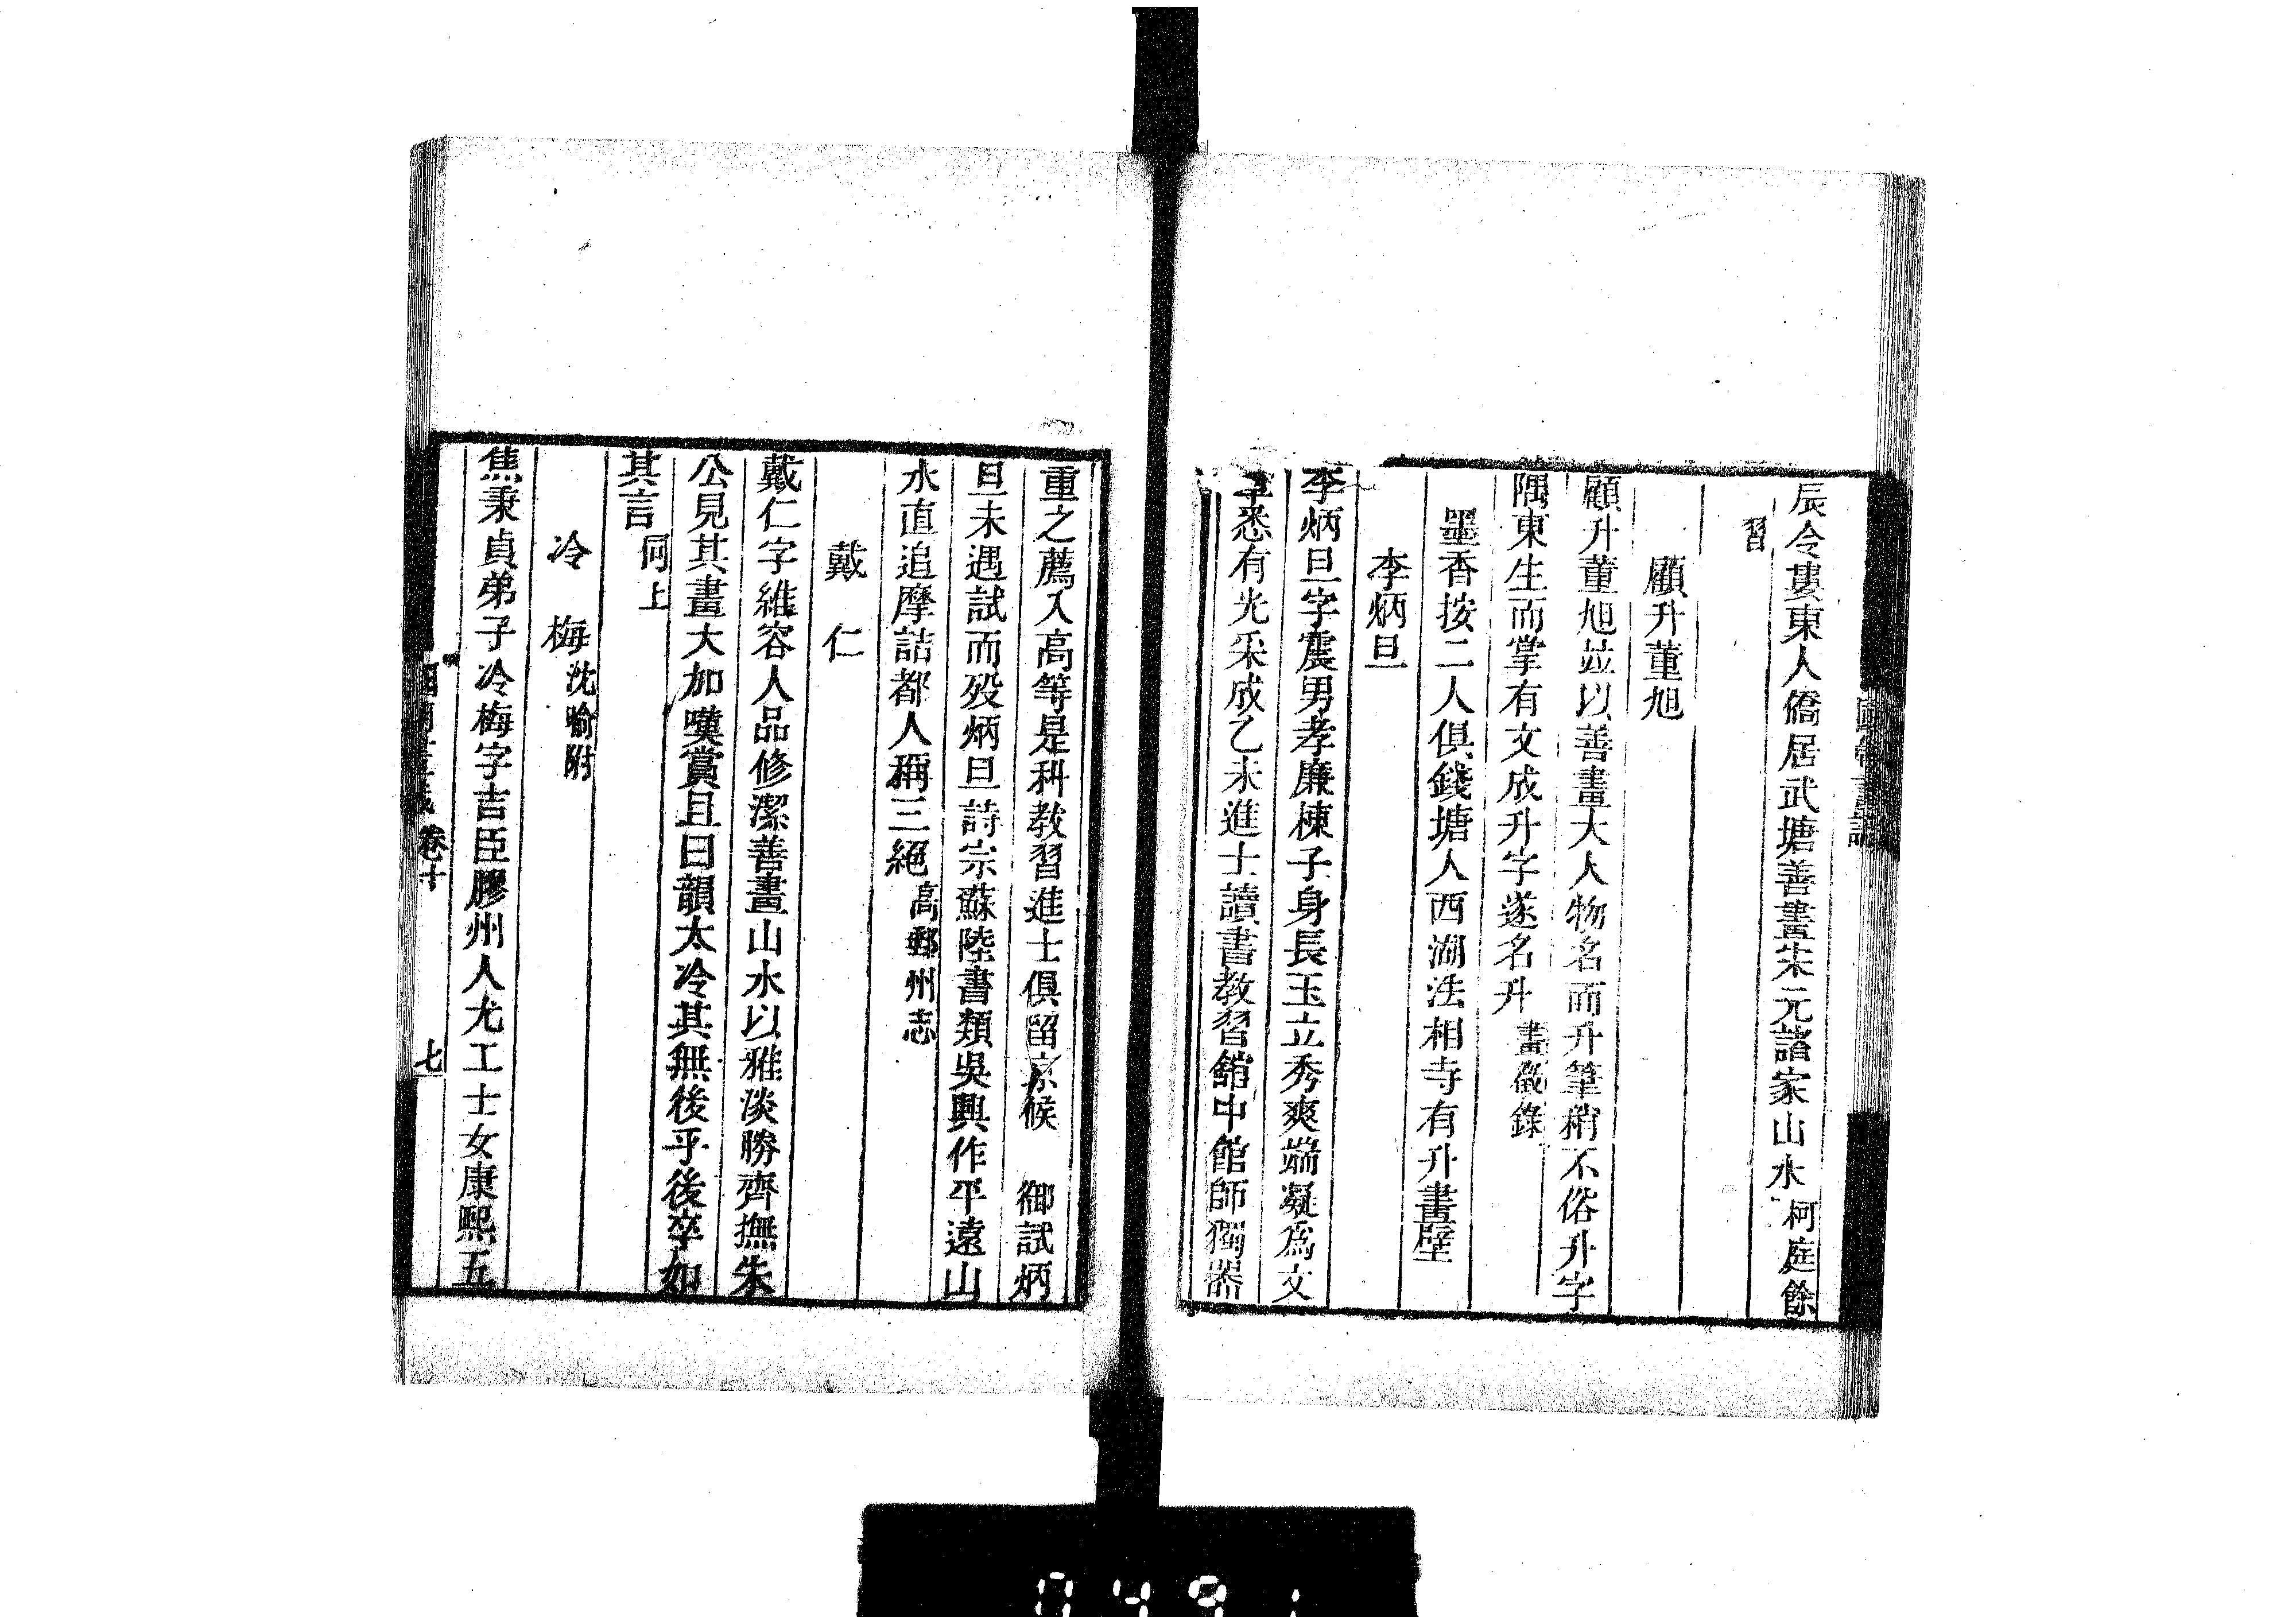 辰令婁東人僑居武塘善畫朱元諸家山水柯庭餘
習
顧升董旭
顧升董旭竝以善畫大人物名而升筆稍不俗升字
隅東生而掌有文成升字遂名升畫徵錄
墨香按二人俱錢塘人西湖法相寺有升畫壁
李炳旦
李炳旦字震男孝廉棟子身長玉立秀爽端凝爲文
章悉有光采成乙未進士讀書教習館中館師獨器
重之薦入高等是科教習進士俱留京候　御試炳
旦未遇試而歿炳旦詩宗蘇陸書類吳興作平遠山
水直追摩詰都人稱三絕高郵州志
戴仁
戴仁字維容人品修潔善畫山水以雅淡勝齊撫朱
公見其畫大加嘆賞且曰韻太冷其無後乎後卒如
其言同上
冷梅沈喻附
焦秉貞弟子冷梅字吉臣膠州人尤工士女康熙五
卷十
七
0491